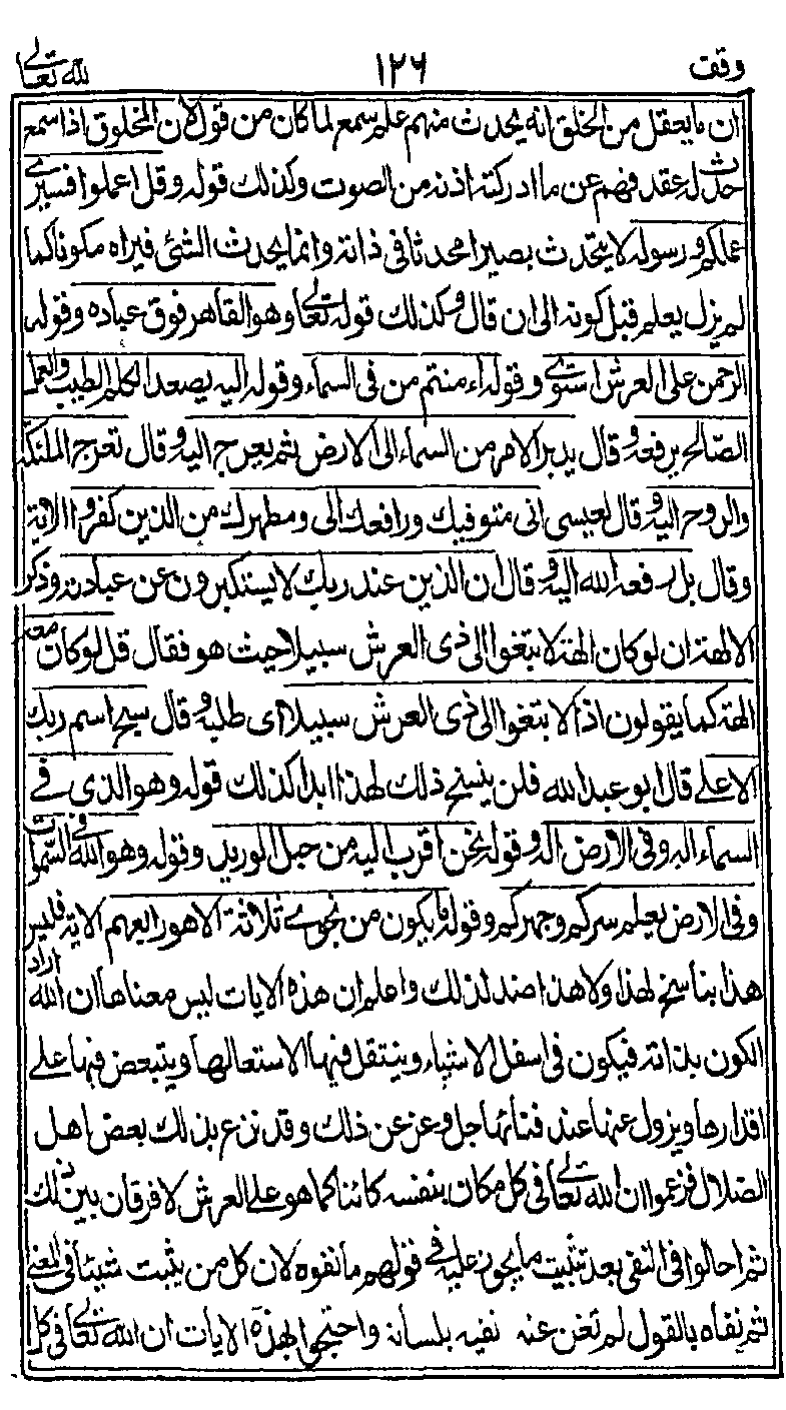 وقف ١٢٦ لله تعالى
ان ما يعقل من الخلق انه يحدث منهم علم سمع لما كان من قول لان المخلوق اذا سمع
حدث له عقد فهم عن ما ادركته اذنه من الصوت وكذلك قوله وقل اعملوا فسيرى
عملكم ورسوله لا يتحدث بصيرا محدثا فى ذاته وانما يحدث الشئ فيراه مكونا كما
لم يزل يعلم قبل كونه الى ان قال وكذلك قوله تعالى وهو القاهر فوق عباده وقوله
الرحمن على العرش استوى وقوله ءامنتم من فى السماء وقوله اليه يصعد الكلم الطيب والعمل
الصالح يرفعه وقال يدبر الامر من السماء الى الارض ثم يعرج اليه وقال تعرج الملئكة
والروح اليه وقال لعيسى انى متوفيك ورافعك الى ومطهرك من الذين كفروا الاية
وقال بل رفعه الله اليه وقال ان الذين عند ربك لا يستكبرون عن عبادته وذكر
الالهة ان لو كان الهة لابتغوا الى ذى العرش سبيلا حيث هو فقال قل لو كان معه
الهة كما يقولون اذا لابتغوا الى ذى العرش سبيلا اى طلبه وقال سبح اسم ربك
الاعلى قال ابو عبد الله فلن ينسخ ذلك لهذا ابدا كذلك قوله وهو الذى فى
السماء اله وفى الارض اله وقوله نحن اقرب اليه من حبل الوريد وقوله وهو الله فى السموات
وفى الارض يعلم سركم وجهركم وقوله ما يكون من نجوى ثلاثة الا هو رابعهم الاية فليس
هذا بناسخ لهذا ولا هذا ضد لذلك واعلم ان هذه الايات ليس معناها ان الله اراد
الكون بذاته فيكون فى اسفل الاشياء وينتقل فيها لاستعالها ويتبعض فيها على
اقدارها ويزول عنها عند فنائها جل وعز عن ذلك وقد نزع بذلك بعض اهل
الضلال فزعموا ان الله تعالى فى كل مكان بنفسه كائنا كما هو على العرش لا فرقان بين ذلك
ثم احالوا فى النفى بعد تثبيت ما يجوز عليه فى قولهم ما نفوه لان كل من يثبت شيئا فى المعنى
ثم نفاه بالقول لم تغن عنه نفيه بلسانه واحتجوا بهذه الايات ان الله تعالى فى كل